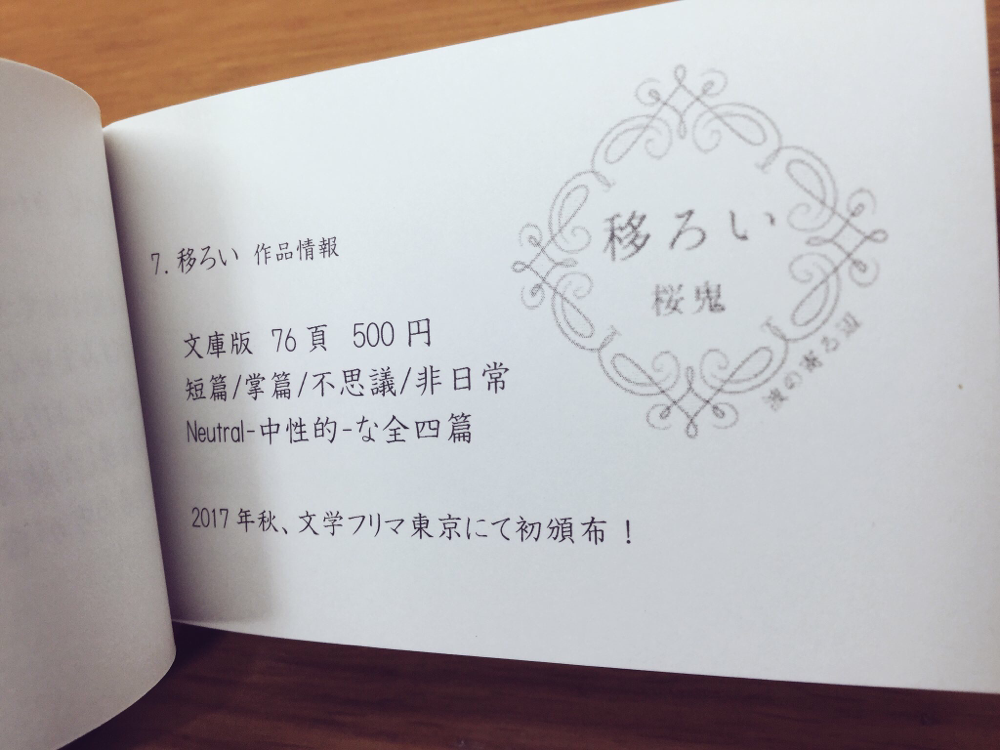 7. 移ろい 作品情報
文庫版 76頁 500円
短篇/掌篇/不思議/非日常
Neutral-中性的-な全四篇
2017年秋、文学フリマ東京にて初頒布！
移ろい
桜鬼
渡の寄る辺